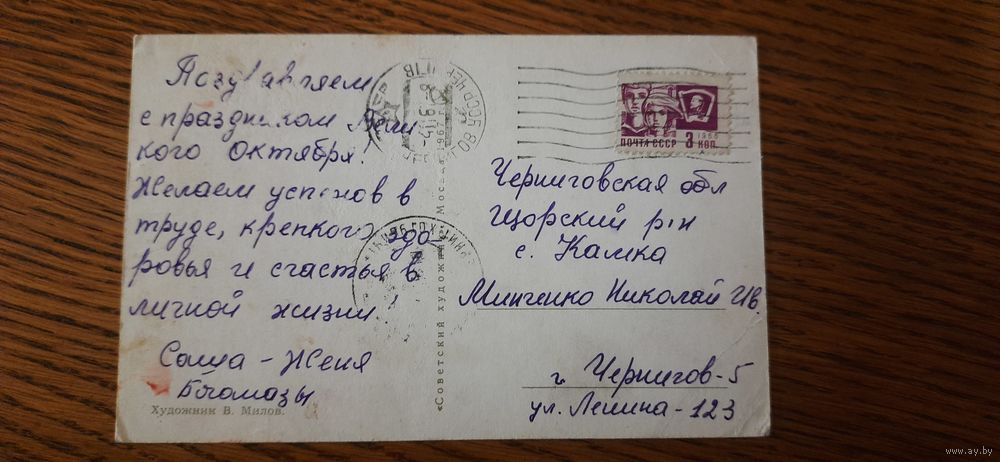 Поздравляем
с праздником Вели
кого Октября!
Желаем успехов в
труде, крепкого здо-
ровья и счастья в
личной жизни!
Саша - Женя
Богомазы
Художник В. Милов.
«Советский художник» Москва 1967
ПОЧТА СССР 3 КОП.
1966
Черниговская обл
Щорский р-н
с. Камка
Минченко Николай Ив.
г. Чернигов-5
ул. Ленина-123
www.ay.by